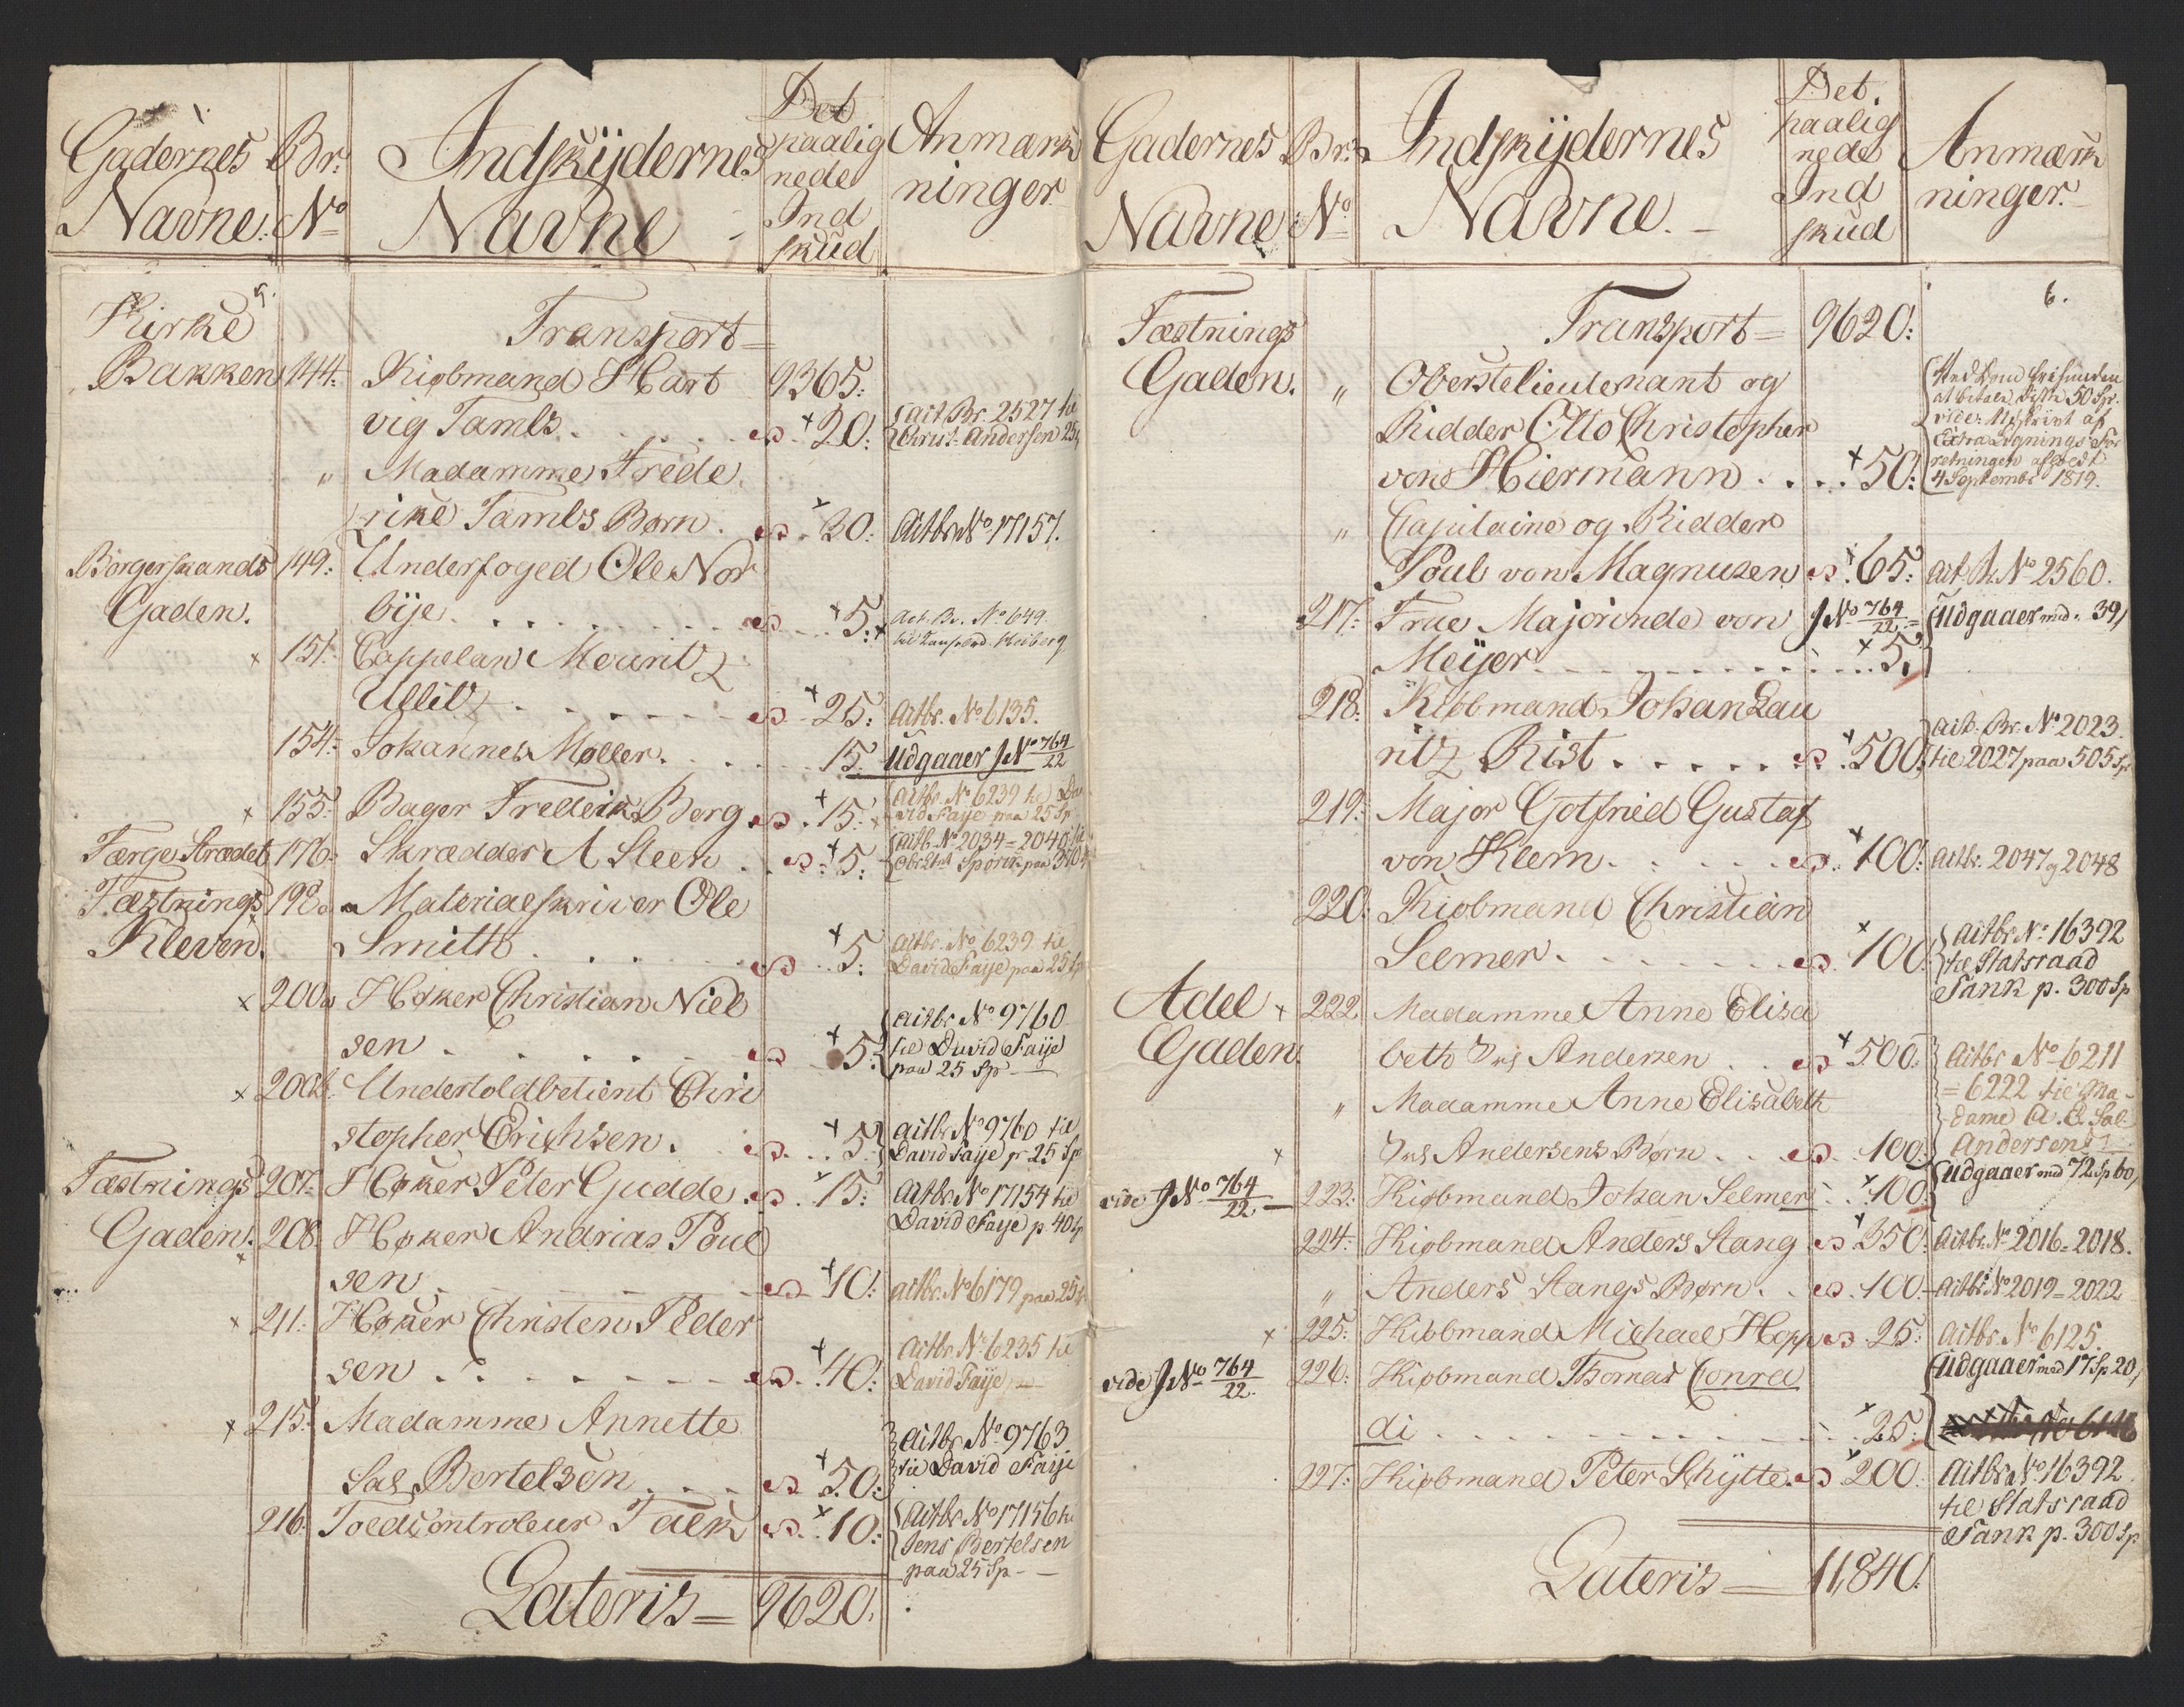 Gadernes Navne. Br: No Indskydernes Navne Det paalig nede Ind skud Anmærk ninger
5.
Kirke Transport
Bakken 144. Kiøbmand Hart 9365:
vig Tambs . . . . 20: Act Br. 2527 til Christ. Andersen 25
" Madamme Frede
rike Tambs Børn . 20: Actbr No 17157.
Borgerstrands 149: Underfoged Ole Nor
Gaden. bije . . . . 5: Act. Br. No 649.
× 151: Cappelan Mouritz
Ullitz . . . . 25: Actbr. No 6135.
154: Johannes Møller . . . 15. Udgaaer JNo 764/22
× 155: Bager Frederik Berg . 15: Actbr. No 6239 til David Faije paa 25 Sp
Færge Strædet 176: Skrædder A Steen . . 5: Actb. No 2034 = 2040
Fæstnings 198a Materialskriver Ole
Kleven. Smith . . . . 5: Actbr. No 6239 til David Faije paa 25 Sp
× 200a Høker Christian Niel
sen . . . . 5: Actbr No 9760 til David Faije paa 25 Sp
× 200b. Undertoldbetient Chri
stopher Erichsen . . . 5: Actbr No 9760 til David Faije p 25 Sp
Fæstnings 207: Høker Peter Gudde . 15: Actbr No 17154 til David Faije p. 40 Sp
Gaden. 208. Høker Andrias Poul
sen . . . . 10: Actbr. No 6179 paa 25
× 211: Høker Christen Peder
sen . . . . 40: Actbr No 6235 til David Faije
× 215: Madamme Annette
Sal. Bertelsen . . . 50: Actbr No 9763 til David Faije
216. Toldcontroleur Falck . 10: Actbr No 17156 til Jens Bertelsen paa 25 Sp
Lateris = 9620.
Gadernes Navne Br: No Indskydernes Navne. Det paalig nede Ind skud Anmærk ninger.
6.
Fæstnings Transport = 9620:
Gaden. " Oberstelieutenant og
Ridder Otto Christopher
von Hiermann . . . 50: at betale 50 Sp. vide Udskrivt af Extra Lignings For retningen afholdt 4 Septembr 1819.
" Capitaine og Ridder
Poul von Magnusen 65: Act Br. No 2560.
217: Frue Majorinde von JNo 764/22 = Udgaaer med 39
Meijer . . . . 5.
218: Kiøbmand Johan Lau
ritz Rist . . . . 500: Act. Br. No 2023 til 2027 paa 505 Sp
219: Major Gotfried Gustaf
von Klem . . . . 100: Actbr. 2047 og 2048
220: Kiøbmand Christian
Selmer . . . . 100. Actbr No 16392 til Statsraad Tank p. 300 Sp
Adel × 222 Madamme Anne Elisa
Gaden. beth Andersen . . 500. Actbr No 6211 = 6222 til Ma dame A. E. Sal. Andersen
" Madamme Anne Elisabeth
× Andersens Børn . . 100:
vide JNo 764/22 223: Kiøbmand Johan Selmer . 100 Udgaaer med 72 Sp 60
224: Kiøbmand Anders Stang 350: Actbr. No 2016 = 2018.
" Anders Stangs Børn . . 100. Actbr No 2019 = 2022
× 225: Kiøbmand Michael Hopp 25: Actbr. No 6125.
vide JNo 764/22. 226: Kiøbmand Thomas Conra Udgaaer med 17 Sp 20
di . . . . 25:
227: Kiøbmand Peter Schytte 200. Actbr No 16392 til Statsraad Tank p. 300 Sp
Lateris = 11,840.